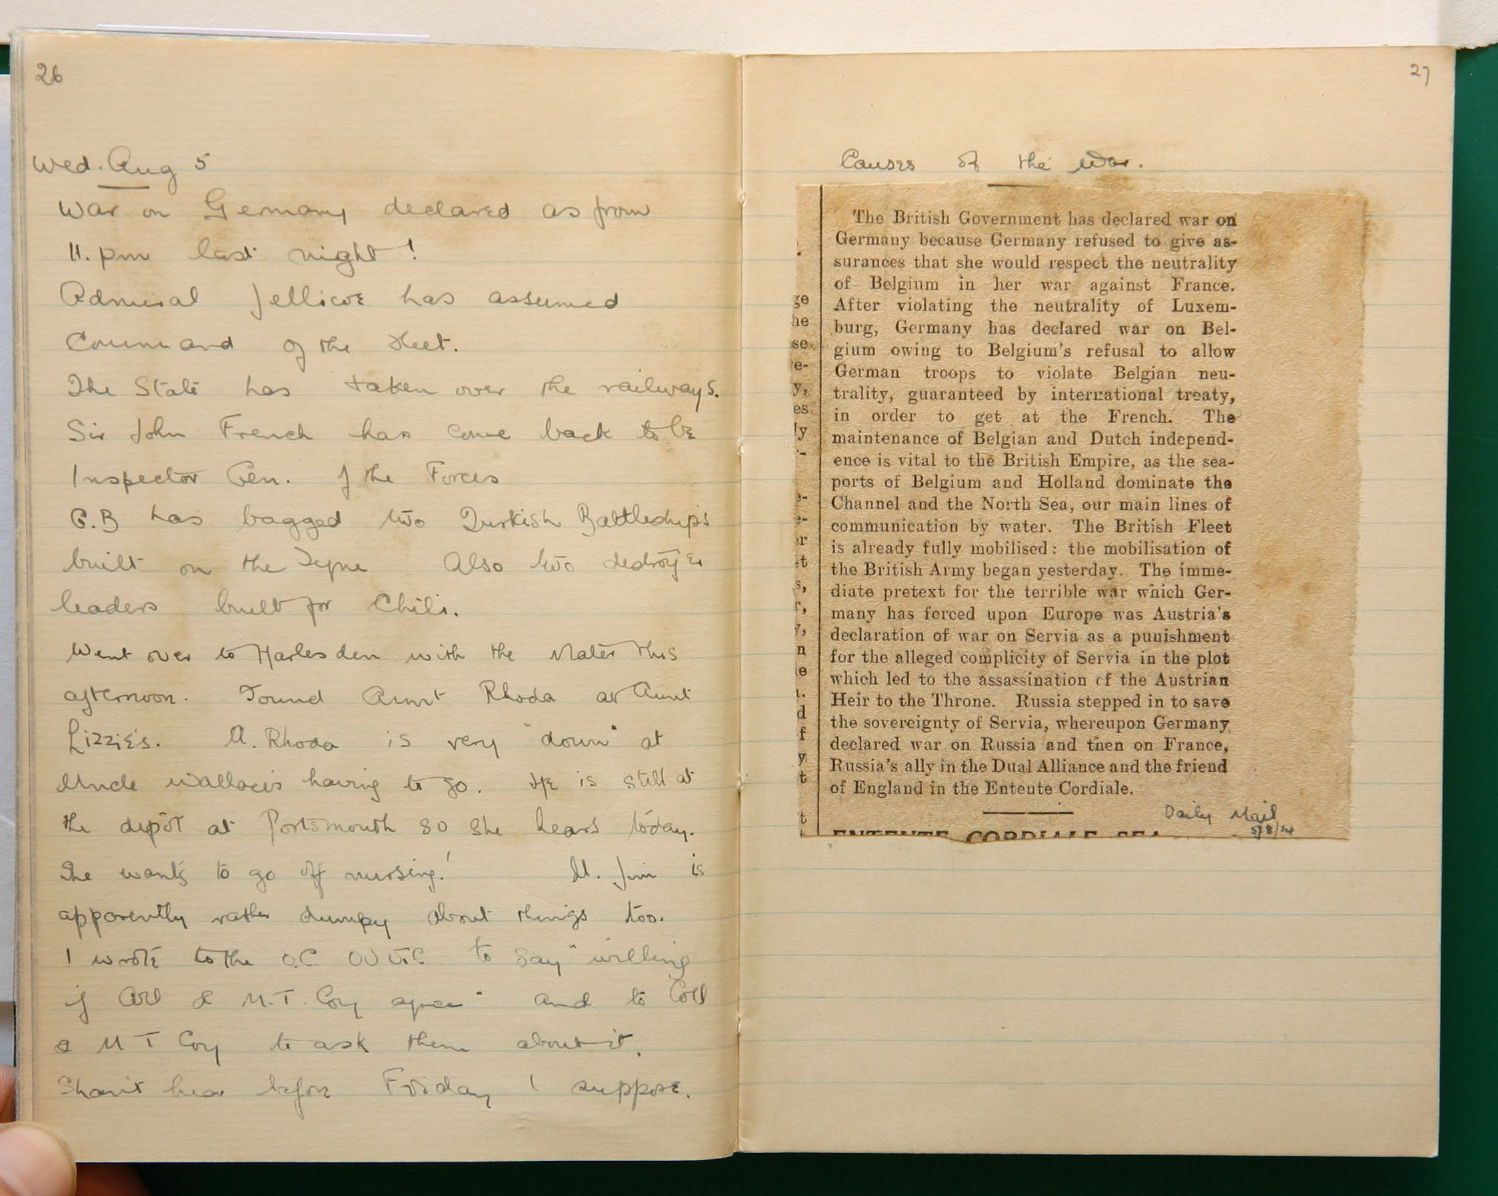 26
Wed. Aug 5
War on Germany declared as from
11. pm last night!
Admiral Jellicoe has assumed
Command of the Fleet.
The State has taken over the railways.
Sir John French has come back to be
Inspector Gen. of the Forces
G.B has bagged two Turkish Battleships
built on the Tyne Also two destroyer
leaders built for Chili.
Went over to Harlesden with the Mater this
afternoon. Found Aunt Rhoda at Aunt
Lizzie's. A. Rhoda is very "down" at
Uncle Wallace's having to go. He is still at
the depôt at Portsmouth so she hears today.
She wants to go off nursing! U. Jim is
apparently rather dumpy about things too.
I wrote to the O.C. OUOTC to say "willing
if Coll & M.T. Coy agree" and to Coll
& M T Coy to ask them about it.
Shan't hear before Friday I suppose.
27
Causes of the War.
The British Government has declared war on
Germany because Germany refused to give as-
surances that she would respect the neutrality
of Belgium in her war against France.
After violating the neutrality of Luxem-
burg, Germany has declared war on Bel-
gium owing to Belgium's refusal to allow
German troops to violate Belgian neu-
trality, guaranteed by international treaty,
in order to get at the French. The
maintenance of Belgian and Dutch independ-
ence is vital to the British Empire, as the sea-
ports of Belgium and Holland dominate the
Channel and the North Sea, our main lines of
communication by water. The British Fleet
is already fully mobilised: the mobilisation of
the British Army began yesterday. The imme-
diate pretext for the terrible war which Ger-
many has forced upon Europe was Austria's
declaration of war on Servia as a punishment
for the alleged complicity of Servia in the plot
which led to the assassination of the Austrian
Heir to the Throne. Russia stepped in to save
the sovereignty of Servia, whereupon Germany
declared war on Russia and then on France,
Russia's ally in the Dual Alliance and the friend
of England in the Entente Cordiale.
Daily Mail
5/8/14
ENTENTE CORDIALE SEA